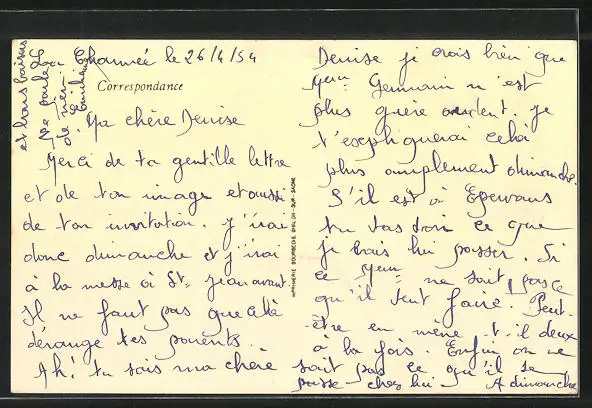 La Charmée le 26/4/54
Correspondance
Ma chère Denise
Merci de ta gentille lettre
et de ton image et aussi
de ton invitation. J'irai
donc dimanche et j'irai
à la messe à St. Jean avant
Il ne faut pas que cela
dérange tes parents.
Ah! tu sais ma chère
Denise je crois bien que
Germain n'est
plus guère ardent. je
t'expliquerai cela
plus amplement dimanche.
S'il est à Epervans
tu vas voir ce que
je vais lui passer. Si
ce ne sait pas ce
qu'il veut faire. Peut-
être en mène-t-il deux
à la fois. Enfin on ne
sait pas ce qu'il se
passe chez lui. A dimanche
Ne parle
de rien
et bons baisers
IMPRIMERIE BOURGEOIS CHALON-SUR-SAONE